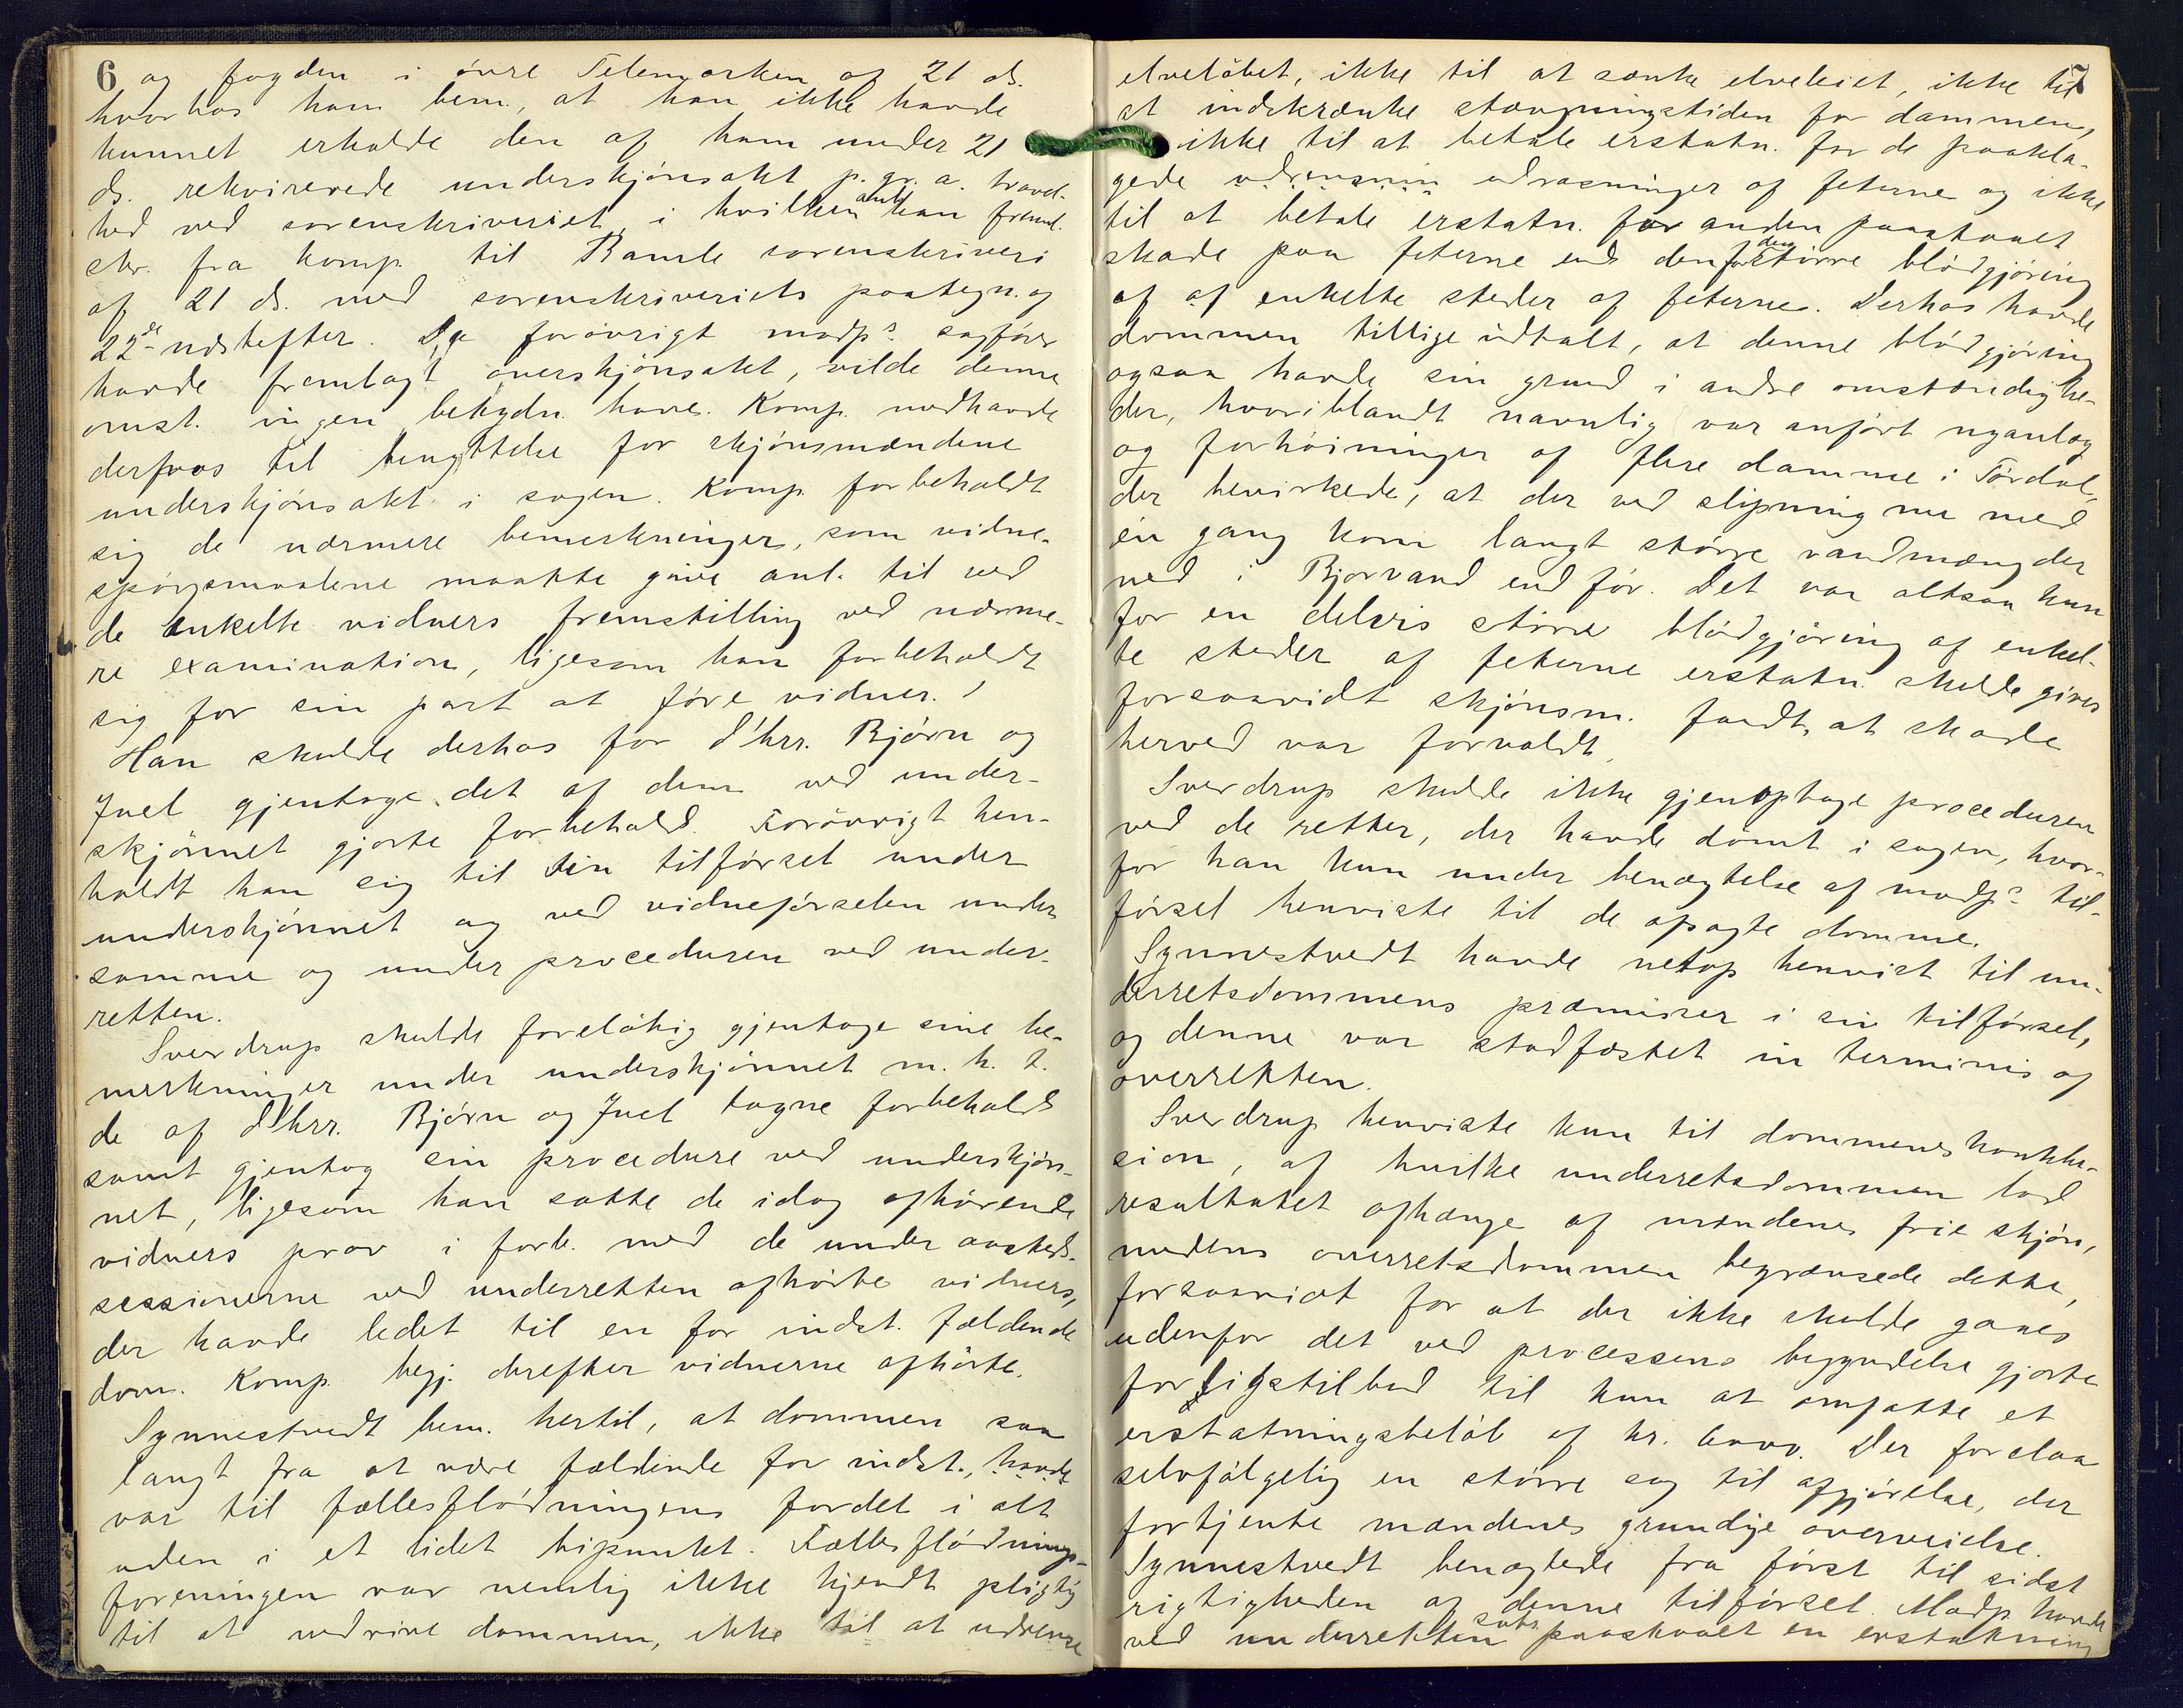 6 og fogden i övre Telemarken af 21 ds.
hvorhos han bem., at han ikke havde
kunnet erholde den af ham under 21
ds. rekvirerede underskjönsakt p. gr. a. travel-
hed ved sorenskriveriet, i hvilken anl. han freml.
skr. fra komp. til Bamle sorenskriveri
af 21 ds. med sorenskriveriets paategn. af
22de næstefter. Da forövrigt modp.s sagförer
havde fremlagt overskjönsakt, vilde denne
omst. ingen betydn. have. Komp. medhavde
derfros til benyttelse for skjönsmændene
underskjönsakt i sagen. Komp. forbeholdt
sig de nærmere bemerkninger, som vidne-
spörgsmaalene maatte give anl. til ved
de enkelte vidners fremstilling ved nærme-
re examination, ligesom han forbeholdt
sig for sin part at före vidner.
Han skulde derhos for d'hrr. Björn og
Juel gjentage det af dem ved under-
skjönnet gjorte forbehold. Forövrigt hen-
holdt han sig til sin tilförsel under
underskjönnet og ved vidneförselen under
samme og under proceduren ved under-
retten.
Sverdrup skulde forelöbig gjentage sine be-
merkninger under underskjönnet m. h. t.
de af d'hrr. Björn og Juel tagne forbehold
samt gjentog sin procedure ved underskjön-
net, ligesom han satte de idag afhörende
vidners prov i forb. med de under aasteds-
sessionerne ved underretten afhörte vidners,
der havde ledet til en for indst. fældende
dom. Komp. begj. derefter vidnerne afhörte.
Synnestvedt bem. hertil, at dommen saa
langt fra at være fældende for indst., havde
var til fællesflödningens fordel i alt
uden i et lidet bipunkt. Fællesflödnings-
foreningen var nemlig ikke kjendt pligtig
til at nedrive dammen, ikke til at udrense
7
elvelöbet, ikke til at sænke elveleiet, ikke til
at indskrænke stævningstiden for dammen,
ikke til at betale erstatn. for de paakla-
gede udrensnin udrasninger af feterne og ikke
til at betale erstatn. for anden paastaaet
skade paa feterne end den for den större blödgjöring
af af enkelte steder af feterne. Derhos havde
dommen tillige udtalt, at denne blödgjöring
ogsaa havde sin grund i andre omstændighe-
der, hvoriblandt navnlig var anfört nyanlæg
og forhöininger af flere damme i Tördal,
der bevirkede, at der ved slipning nu med
én gang kom langt större vandmængder
ned i Bjorvand end för. Det var altsaa kun
for en delvis större blödgjöring af enkel-
te steder af feterne erstatn. skulde gives
forsaavidt skjönsm. fandt, at skade
herved var forvoldt.
Sverdrup skulde ikke gjenoptage proceduren
ved de retter, der havde dömt i sagen, hvor-
for han kun under benægtelse af modp.s til-
försel henviste til de afsagte domme.
Synnestvedt havde netop henvist til un-
derretsdommens præmisser i sin tilförsel,
og denne var stadfæstet in terminis af
overretten.
Sverdrup henviste kun til dommenes konklu-
sion, af hvilke underretsdommen lod
resultatet afhænge af mændenes frie skjön,
medens overretsdommen begrænsede dette,
forsaavidt for at der ikke skulde gaaes
udenfor det ved processens begyndelse gjorte
forligstilbud til kun at omfatte et
erstatningsbelöb af kr. 6000. Der forelaa
selvfölgelig en större sag til afgjörelse, der
fortjente mændenes grundige overveielse.
Synnestvedt benægtede fra först til sidst
rigtigheden af denne tilförsel. Modp. havde
ved underretten subs. paastaaet en erstatning